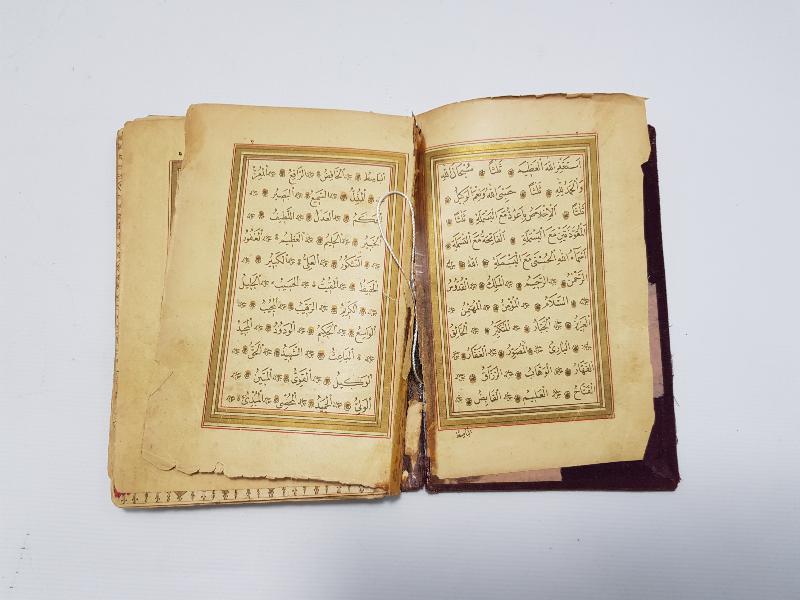 اَسْتَغْفِرُ اللهَ الْعَظِيمَ ثَلٰثًا سُبْحَانَ اللهِ
وَالْحَمْدُ لِلّٰهِ ثَلٰثًا حَسْبِيَ اللهُ وَنِعْمَ الْوَكِيلُ
ثَلٰثًا الْاِخْلَاصُ مَعَ الْبَسْمَلَةِ ثَلٰثًا
الْمُعَوِّذَتَيْنِ مَعَ الْبَسْمَلَةِ الْفَاتِحَةُ مَعَ الْبَسْمَلَةِ
اَسْمَاءُ اللهِ الْحُسْنٰى مَعَ الْبَسْمَلَةِ اللهُ
الرَّحْمٰنُ الرَّحِيمُ الْمَلِكُ الْقُدُّوسُ
السَّلَامُ الْمُؤْمِنُ الْمُهَيْمِنُ
الْعَزِيزُ الْجَبَّارُ الْمُتَكَبِّرُ الْخَالِقُ
الْبَارِئُ الْمُصَوِّرُ الْغَفَّارُ
الْقَهَّارُ الْوَهَّابُ الرَّزَّاقُ
الْفَتَّاحُ الْعَلِيمُ الْقَابِضُ
الْبَاسِطُ
الْبَاسِطُ الْخَافِضُ الرَّافِعُ الْمُعِزُّ
الْمُذِلُّ السَّمِيعُ الْبَصِيرُ
الْحَكَمُ الْعَدْلُ اللَّطِيفُ
الْخَبِيرُ الْحَلِيمُ الْعَظِيمُ الْغَفُورُ
الشَّكُورُ الْعَلِيُّ الْكَبِيرُ
الْحَفِيظُ الْمُقِيتُ الْحَسِيبُ الْجَلِيلُ
الْكَرِيمُ الرَّقِيبُ الْمُجِيبُ
الْوَاسِعُ الْحَكِيمُ الْوَدُودُ الْمَجِيدُ
الْبَاعِثُ الشَّهِيدُ الْحَقُّ
الْوَكِيلُ الْقَوِيُّ الْمَتِينُ
الْوَلِيُّ الْحَمِيدُ الْمُحْصِي الْمُبْدِئُ